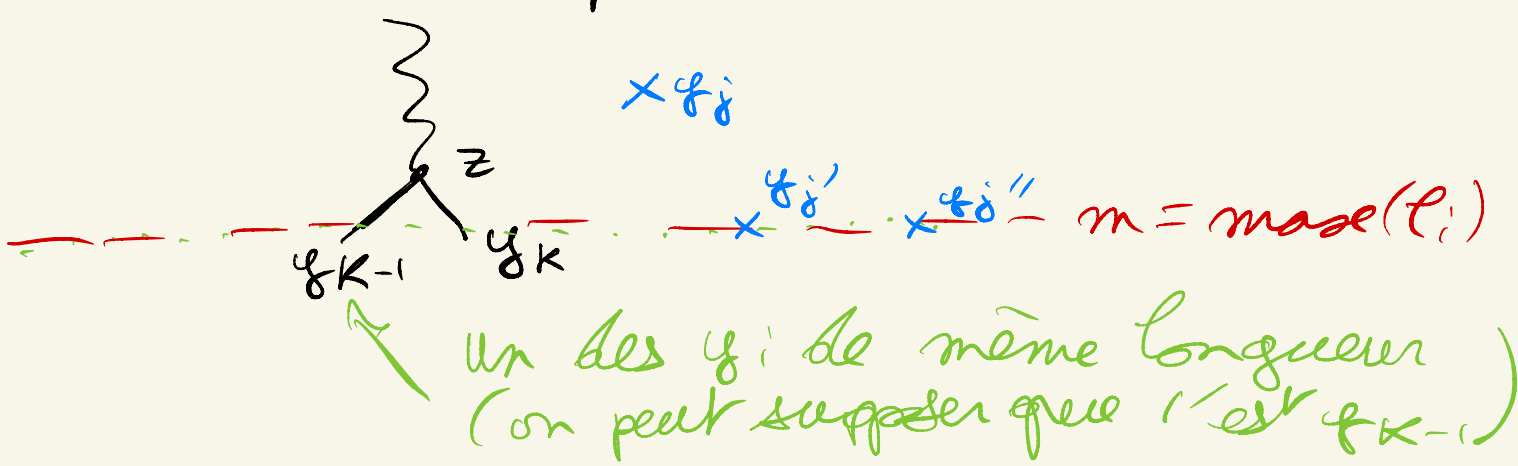 × y_j
z
y_j' y_j'' m = max(l_i)
y_{K-1} y_K
un des y_i de même longueur
(on peut supposer que c'est y_{K-1})